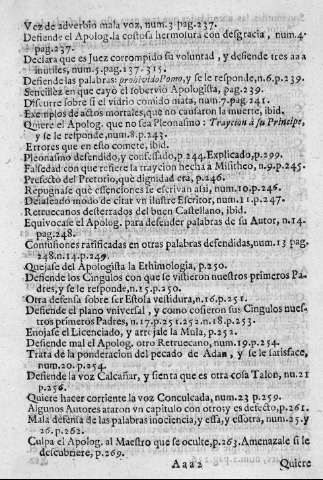 Vez de adverbio mala voz, num.3. pag.237.
Defiende el Apolog. la costosa hermosura con desgracia, num.4.
pag.237.
Declara que es Juez corrompido su voluntad, y defiende tres aa a
inutiles, num.5. pag.237. 315.
Defiende las palabras: prohibido Pomo, y se le responde, n.6. p.239.
Sencillèz en que cayò el sobervio Apologista, pag.239.
Discurre sobre si el vidrio comido mata, num.7. pag.241.
Exemplos de actos mortales, que no causaron la muerte, ibid.
Quiere el Apolog. que no sea Pleonasmo: Traycion à su Principe,
y se le responde, num.8. p.243.
Errores que en esto comete, ibid.
Pleonasmo defendido, y confessado, p.244. Explicado, p.299.
Falsedad con que refiere la traycion hecha à Misitheo, n.9. p.245.
Prefecto del Pretorio, què dignidad era, p.246.
Repugnase què essenciones se escrivan assi, num.10. p.246.
Desaleado modo de citar vn ilustre Escritor, num.11. p.247.
Retruecanos desterrados del buen Castellano, ibid.
Equivocase el Apolog. para defender palabras de su Autor, n.14.
pag.248.
Confusiones ratificadas en otras palabras defendidas, num.13. pag.
248. n.14. p.249.
Quejase del Apologista la Ethimologia, p.250.
Defiende los Cingulos con que se vistieron nuestros primeros Padres,
y se le responde, n.15. p.250.
Otra defensa sobre ser Estola vestidura, n.16. p.251.
Defiende el plano vniversal, y como cosieron sus Cingulos nuestros
primeros Padres, n.17. p.251. 252. n.18. p.253.
Enojase el Licenciado, y arrojale la Mula, p.252.
Defiende mal el Apolog. otro Retruecano, num.19. p.254.
Trata de la ponderacion del pecado de Adan, y se le satisface,
num.20. p.254.
Defiende la voz Calcañar, y sienta que es otra cosa Talon, nu.21
p.256.
Quiere hacer corriente la voz Conculcada, num.23. p.259.
Algunos Autores ataron vn capitulo con otro y es defecto, p.261.
Mala defensa de las palabras inociencia, y essa, y essotra, num.25. y
26. p.262.
Culpa el Apolog. al Maestro que se oculte, p.263. Amenazale si le
descubriere, p.269.
Aaaa2 Quiere